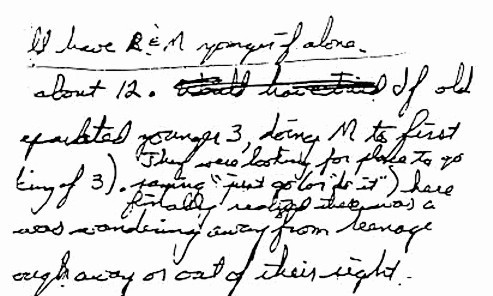 have R & M younger if alone.
about 12. Would have If old
eparated younger 3, doing M to first
They were looking for place to go
king of 3). saying "just go (or "do it") here
Finally realized there was a
was wandering away from teenage
ough away or out of their sight.